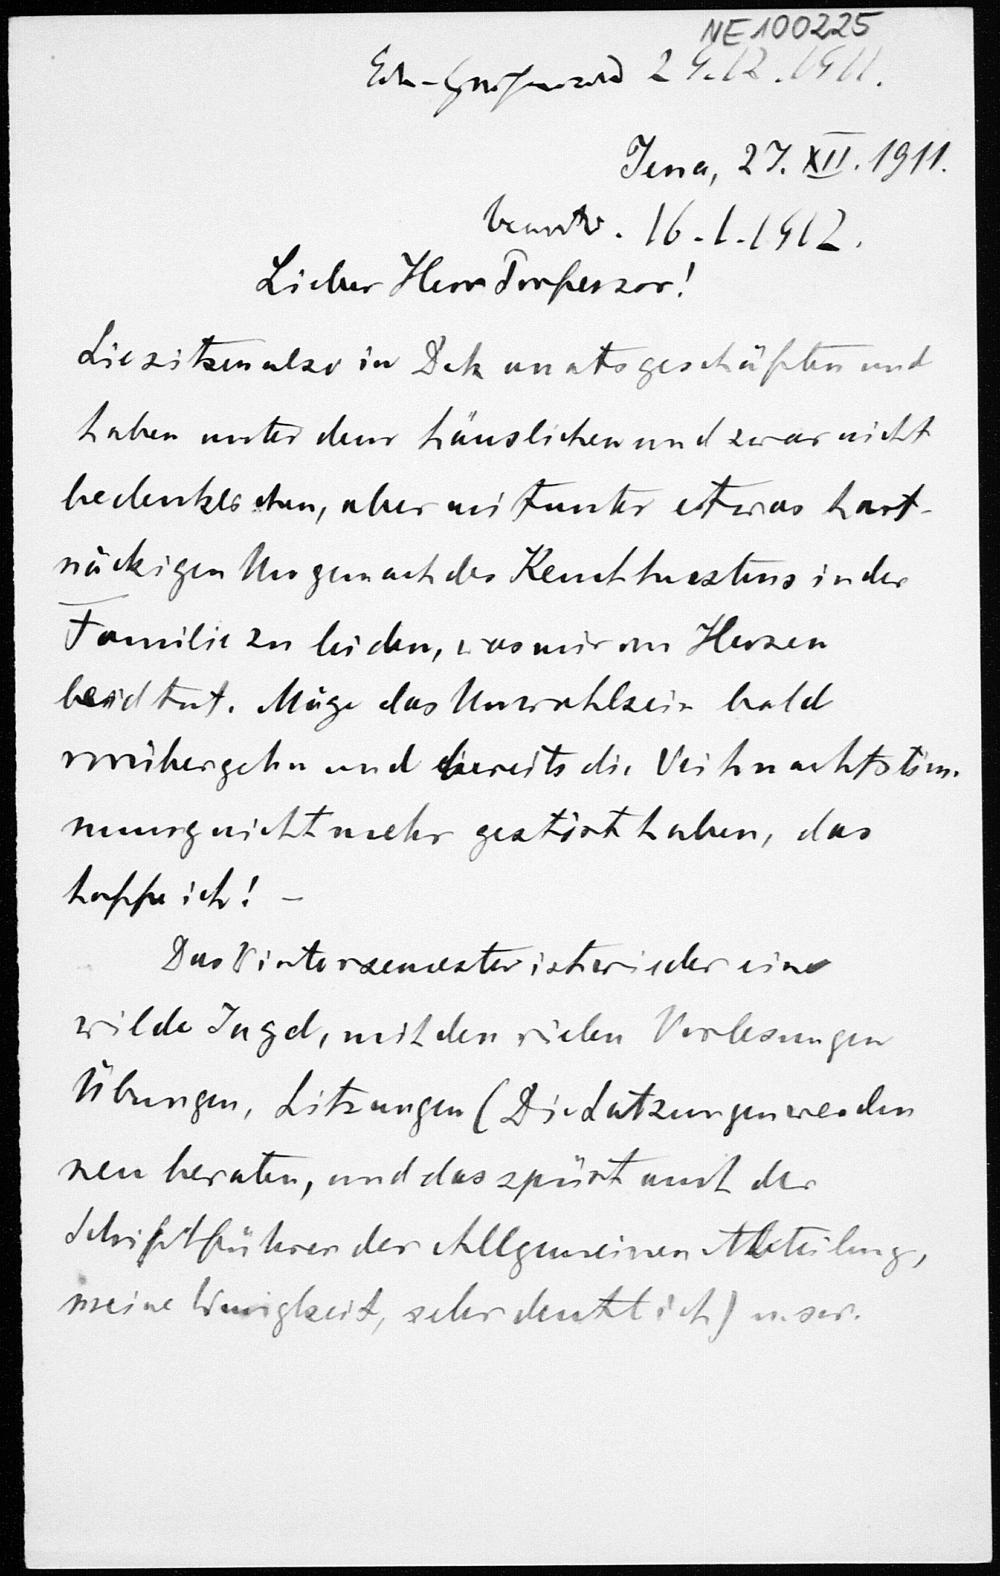 NE 100225
Erh. Greifswald 29.12.1911.
Jena, 27. XII. 1911.
beantw. 16.1.1912.
Lieber Herr Professor!
Sie sitzen also in Dekanatsgeschäften und
haben unter dem häuslichen und zwar nicht
bedenklichen, aber mitunter etwas hart-
näckigen Ungemach des Keuchhustens in der
Familie zu leiden, was mir von Herzen
leid tut. Möge das Unwohlsein bald
vorübergehn und bereits die Weihnachtstim-
mung nicht mehr gestört haben, das
hoffe ich! –
Das Wintersemester ist wieder eine
wilde Jagd, mit den vielen Vorlesungen
Übungen, Sitzungen (Die Satzungen werden
neu beraten, und das spürt auch der
Schriftführer der Allgemeinen Abteilung,
meine Wenigkeit, sehr deutlich) u.sw.